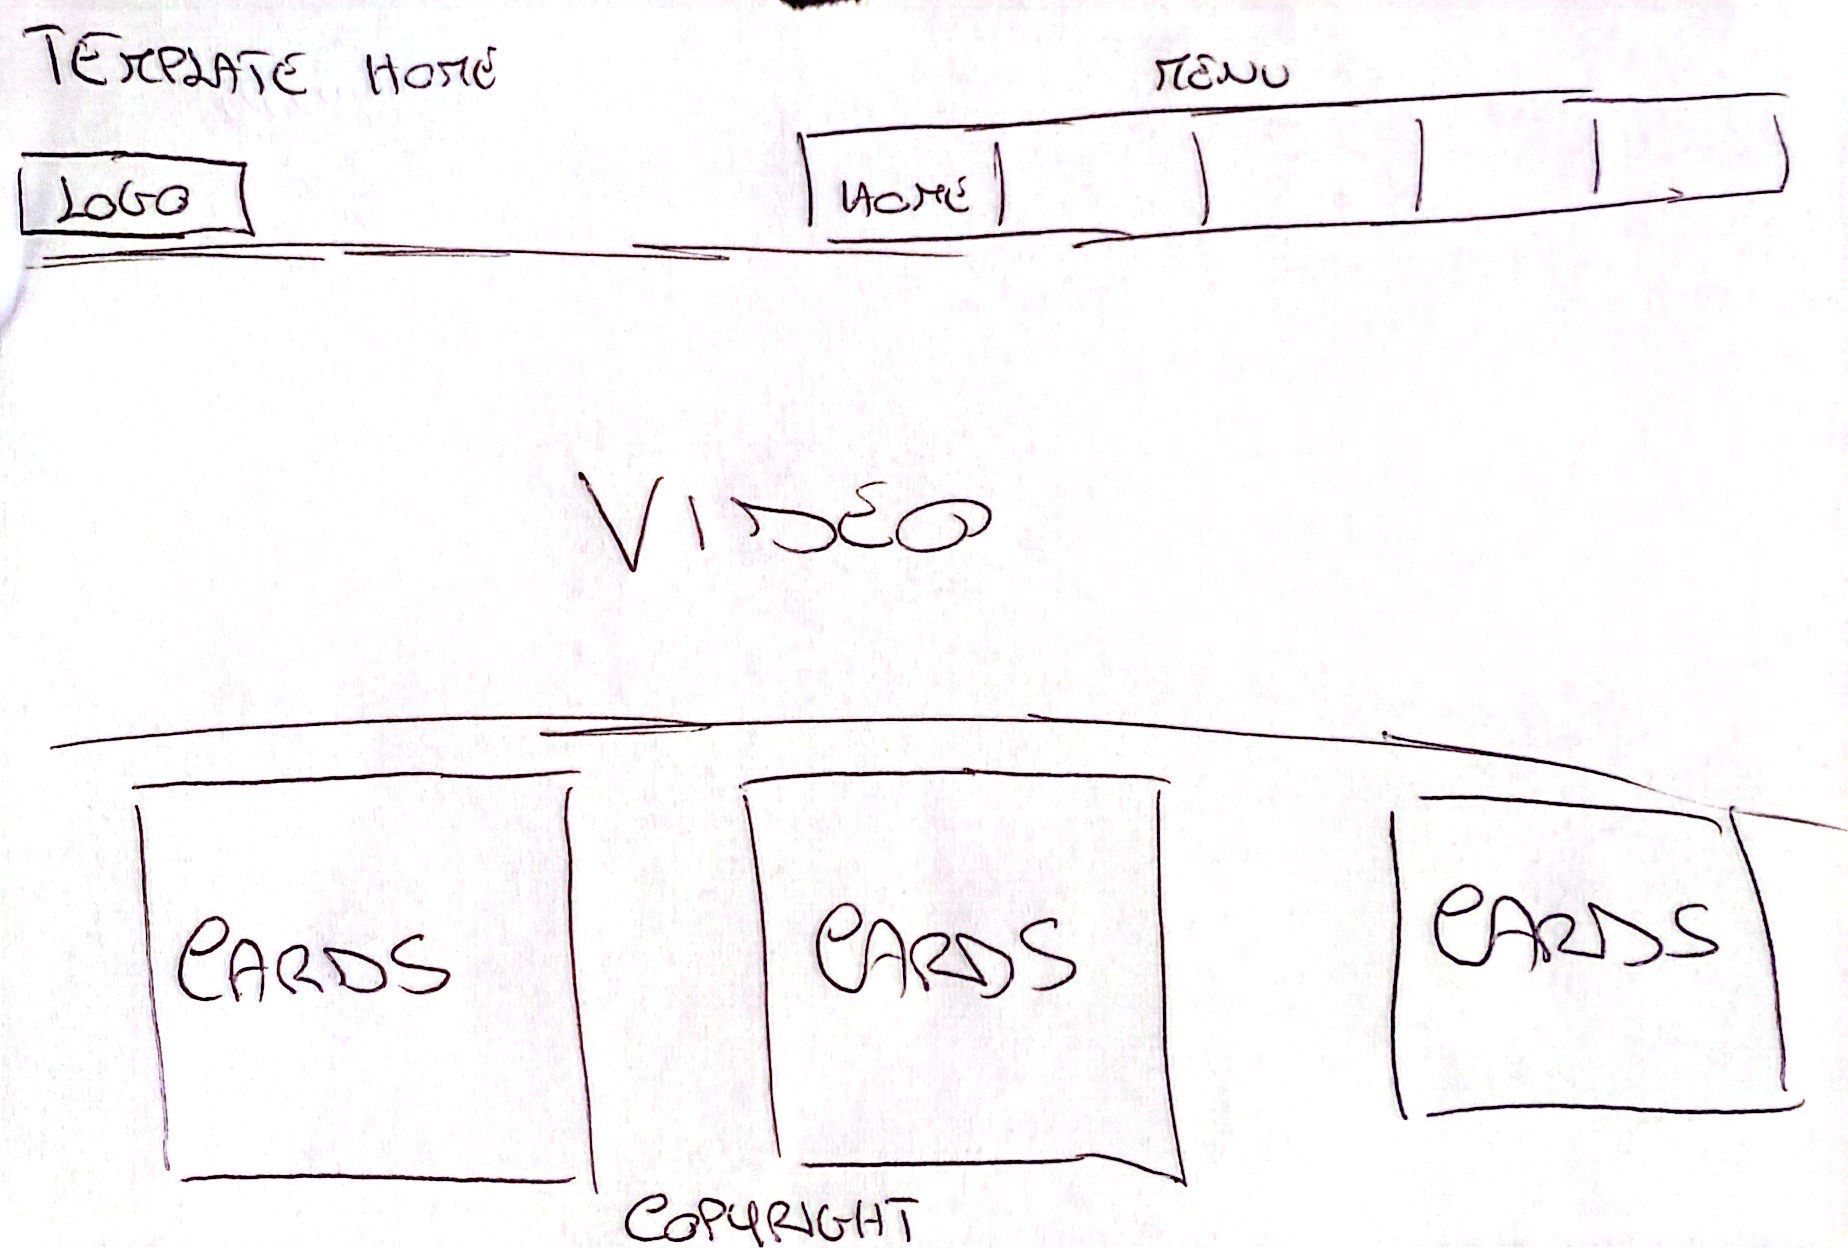 TEMPLATE HOME
MENU
LOGO
HOME
VIDEO
CARDS
CARDS
CARDS
COPYRIGHT